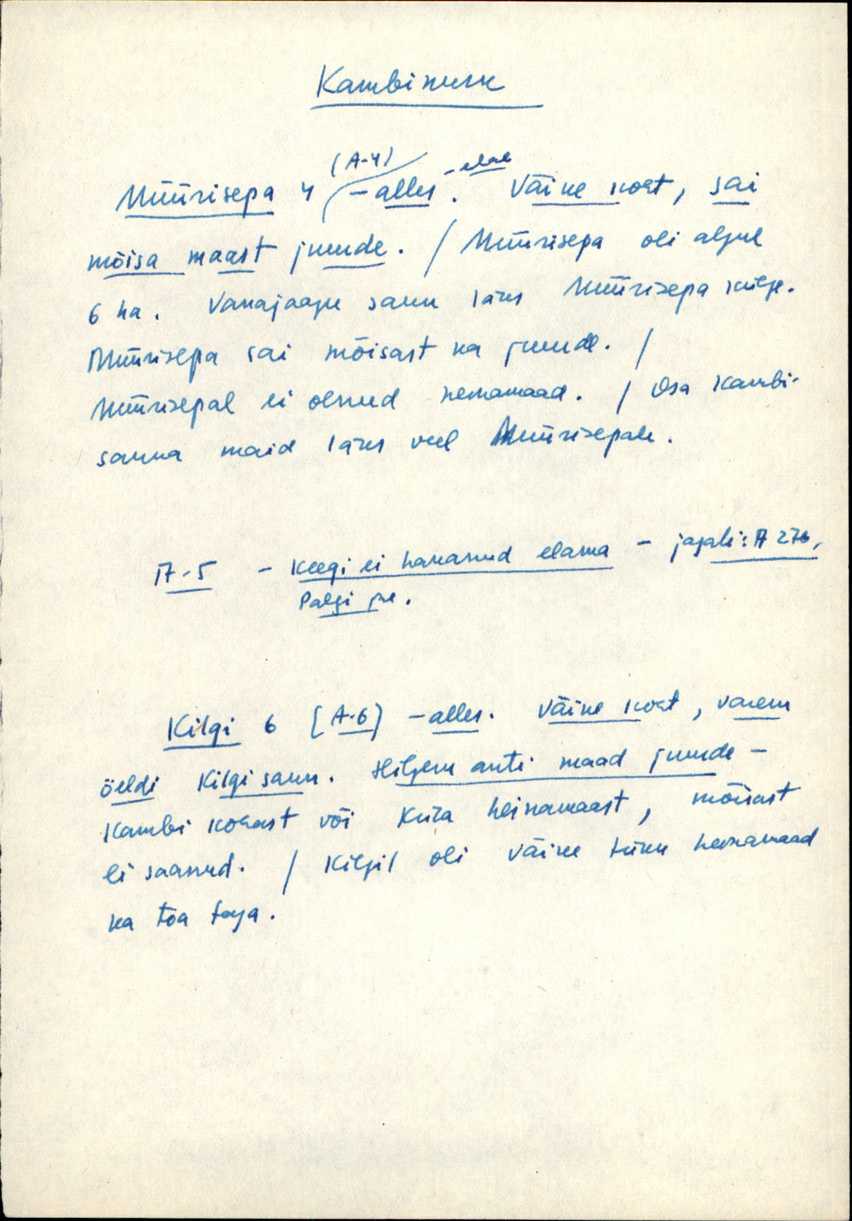 Kambinurk
(A-4)
Müürisepa 4 - alles. - elab Väike koht, sai
mõisa maast juurde. / Müürisepa oli algul
6 ha. Vanajaagu saun läks Müürisepa külge.
Müürisepa sai mõisast ka juurde. /
Müürisepal ei olnud heinamaad. / Osa Kambi-
sauna maid läks veel Müürisepale.
A-5 - Keegi ei hakanud elama - jagati: A 276,
Palgi jne.
Kilgi 6 [A-6] - alles. Väike koht, varem
öeldi Kilgi saun. Hiljem anti maad juurde -
Kambi kohast või küla heinamaast, mõisast
ei saanud. / Kilgil oli väike tükk heinamaad
ka toa taga.